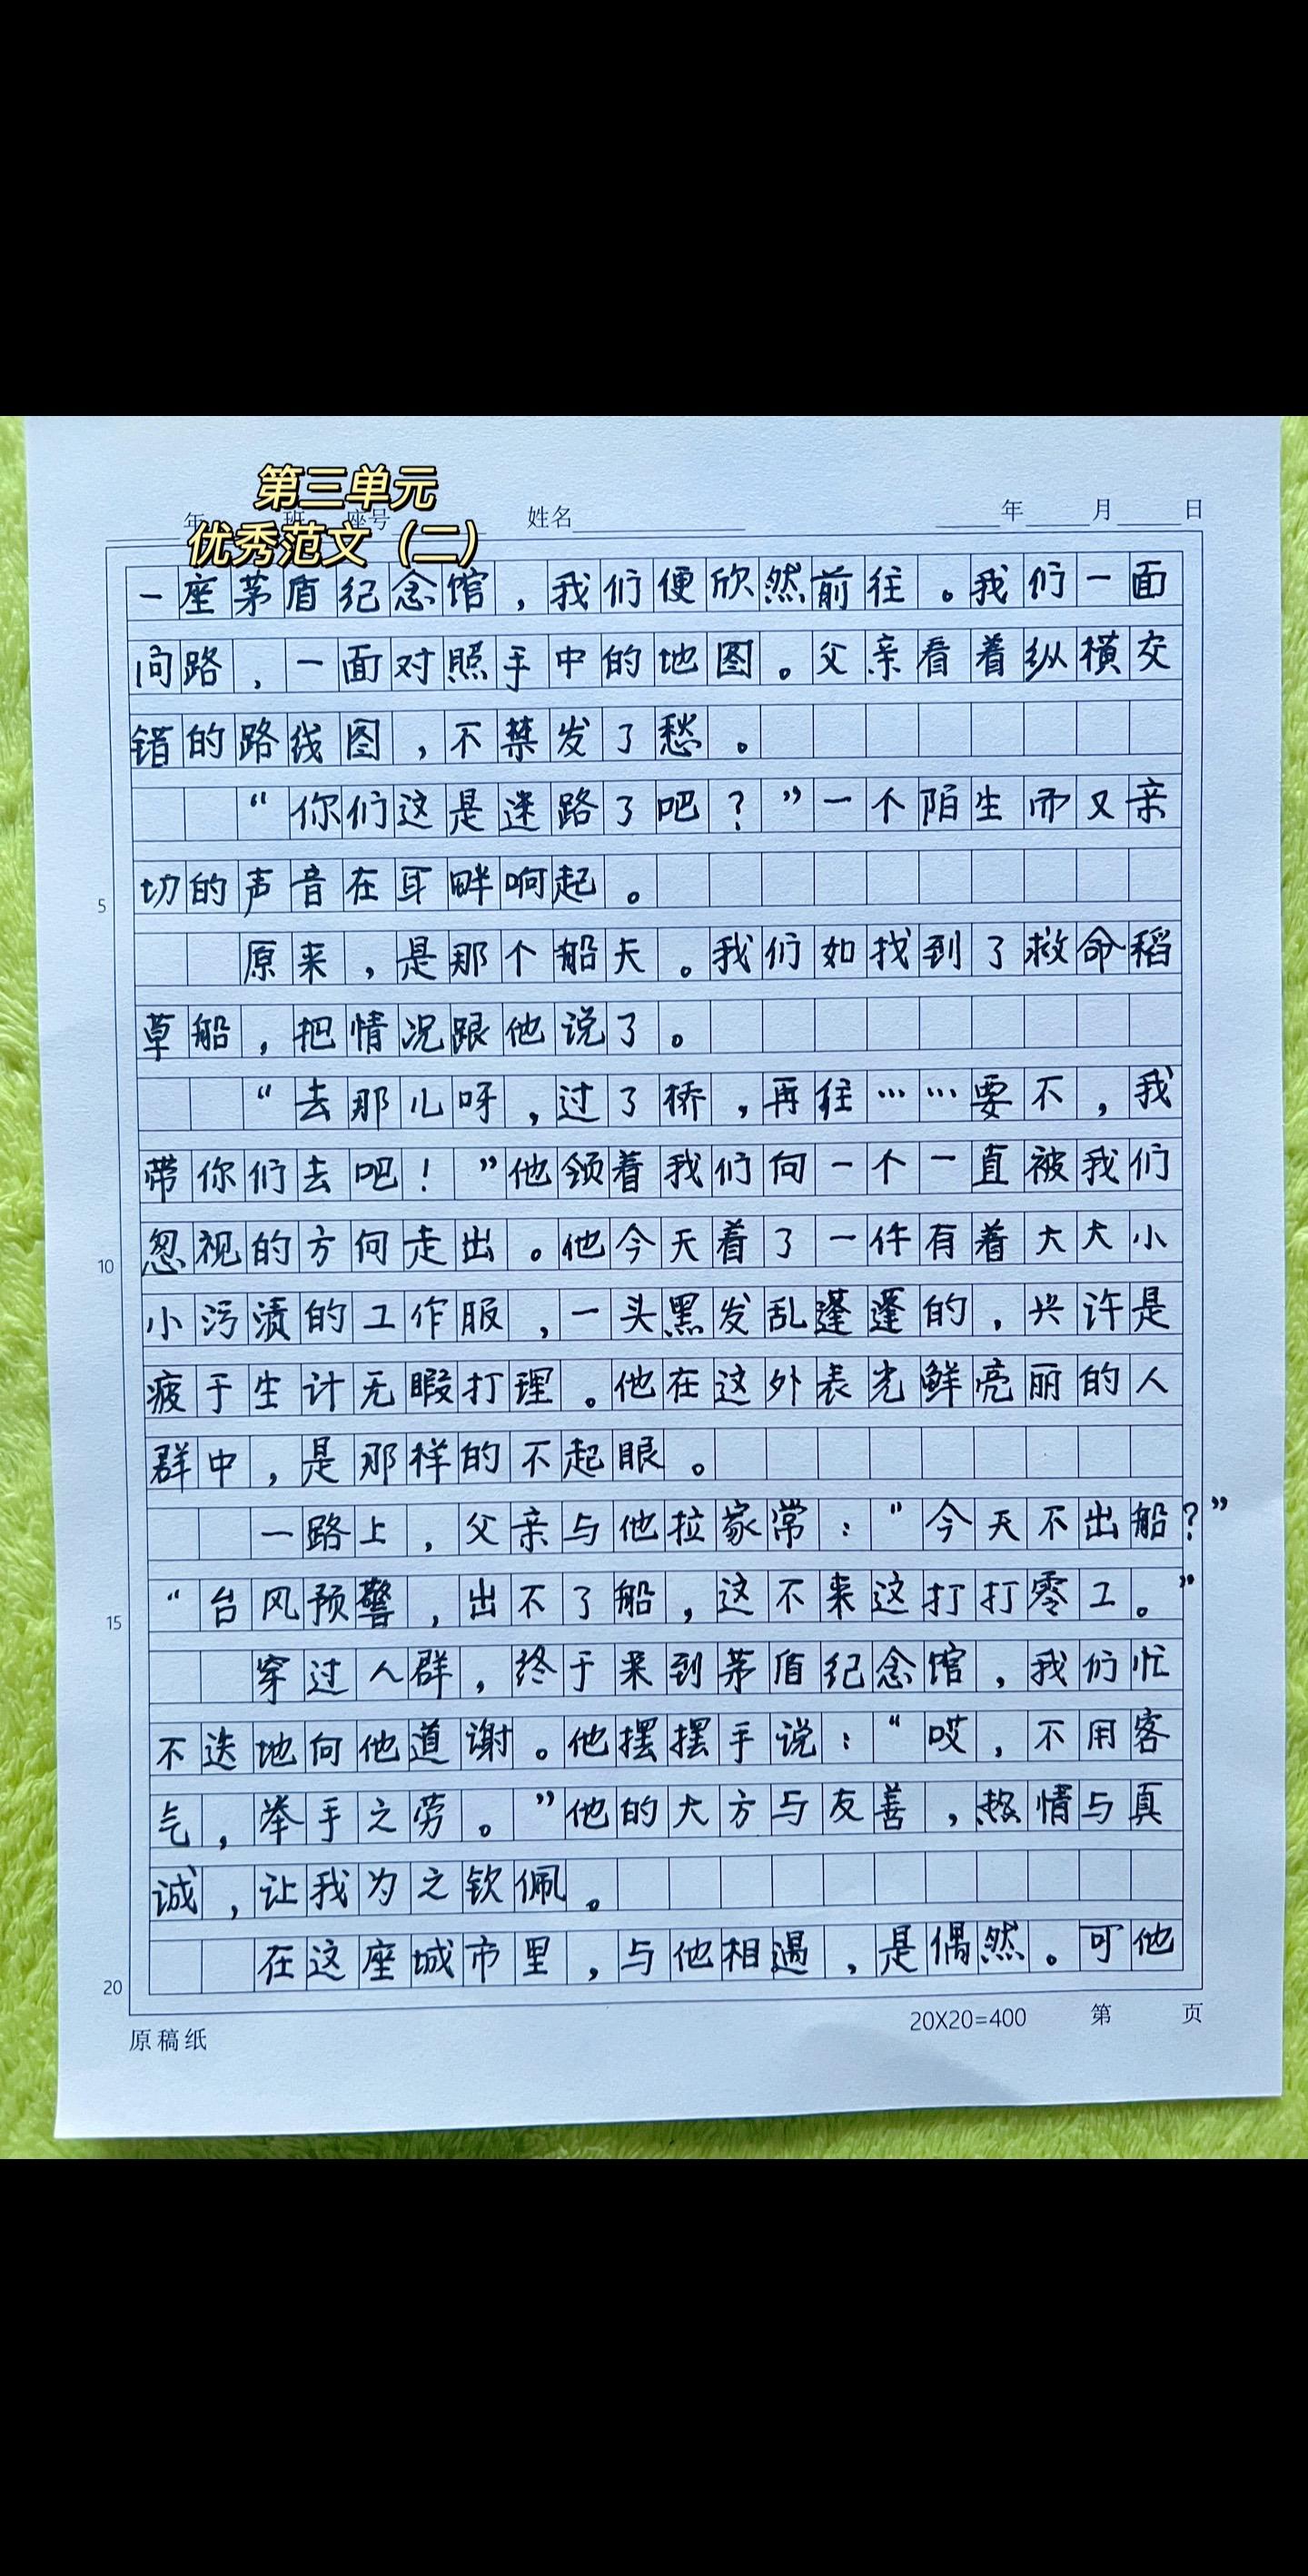 第三单元
优秀范文（二）
年 班 座号 姓名 年 月 日
一座茅盾纪念馆，我们便欣然前往。我们一面
问路，一面对照手中的地图。父亲看着纵横交
错的路线图，不禁发了愁。
“你们这是迷路了吧？”一个陌生而又亲
切的声音在耳畔响起。
5
原来，是那个船夫。我们如找到了救命稻
草船，把情况跟他说了。
“去那儿呀，过了桥，再往……要不，我
带你们去吧！”他领着我们向一个一直被我们
忽视的方向走出。他今天着了一件有着大大小
10
小污渍的工作服，一头黑发乱蓬蓬的，兴许是
疲于生计无暇打理。他在这外表光鲜亮丽的人
群中，是那样的不起眼。
一路上，父亲与他拉家常：“今天不出船？”
“台风预警，出不了船，这不来这打打零工。”
15
穿过人群，终于来到茅盾纪念馆，我们忙
不迭地向他道谢。他摆摆手说：“哎，不用客
气，举手之劳。”他的大方与友善，热情与真
诚，让我为之钦佩。
在这座城市里，与他相遇，是偶然。可他
20
原稿纸 20X20=400 第 页